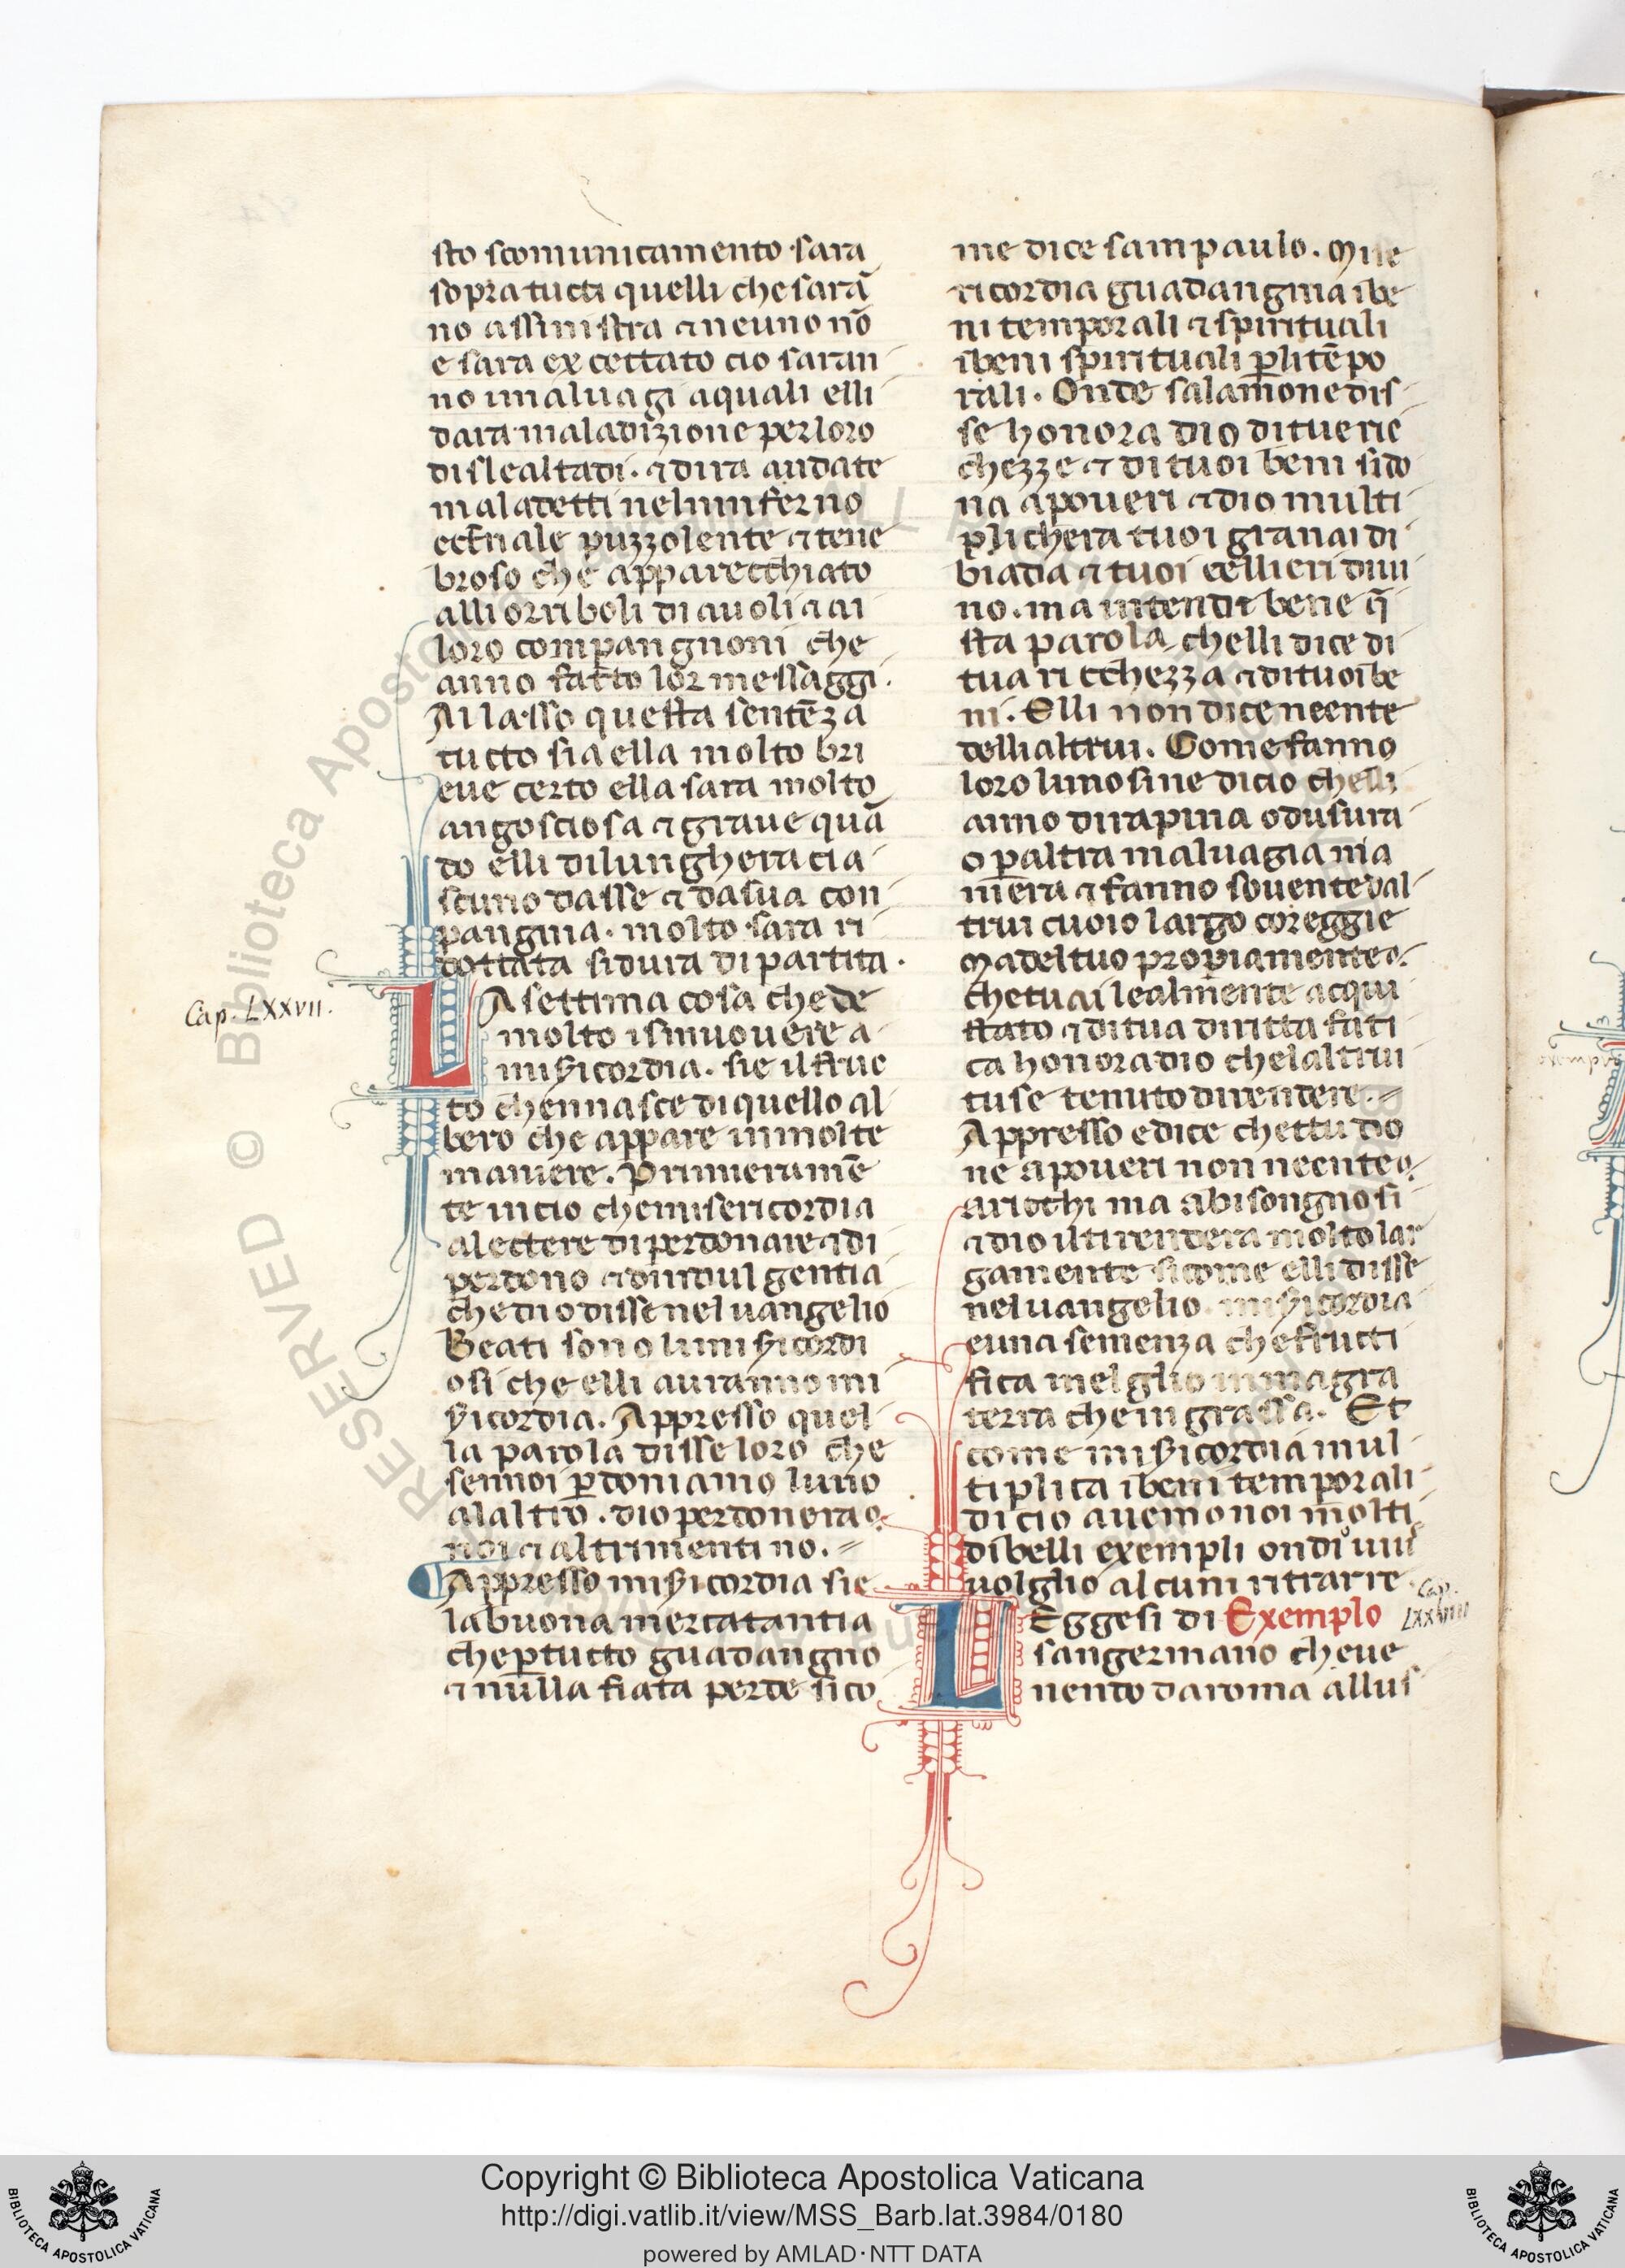 sto scomunicamento sara
sopra tucti quelli che sarā
no assinistra ⁊ neuno nō
e sara excettato cio saran
no imaluagi aquali elli
dara maladizione per loro
dislealtadi. ⁊ dira andate
maladetti nelninferno
ecternale puzzolente ⁊ tene
broso che apparecchiato
alli orriboli diauoli ⁊ ai
loro compangnoni che
anno fatto lor messaggi.
Ai lasso questa sentēza
tucto sia ella molto bri
eue certo ella sara molto
angosciosa ⁊ graue quā
do elli dilunghera cia
scuno dasse ⁊ da sua con
pangnia. molto sara ri
dottata si dura dipartita.
Cap. LXXVII.
LA settima cosa che de
molto ismuouere a
mis̄icordia. sie il frue
to chennasce di quello al
bero che appare in molte
maniere. Primieramē
te in cio che misericordia
a lectere di perdonare ⁊ di
perdono ⁊ dindulgentia
che dio disse nel uangelio
Beati sono limis̄icordi
osi che elli auranno mi
s̄icordia. Appresso quel
la parola disse loro che
sennoi ꝑdoniamo luno
alaltro. dio perdonera a
noi ⁊ altrimenti no.
Appresso mis̄icordia sie
la buona mercatantia
che ꝑtucto guadangno
⁊ nulla fiata perde sico
me dice sam paulo. Mise
ricordia guadangnia ibe
ni temporali ⁊ spirituali
ibeni spirituali ꝑlitēpo
rali. Onde salamone dis
se honora dio di tue ric
chezze ⁊ di tuoi beni si do
na apoueri ⁊ dio multi
plichera tuoi granai di
biada ⁊ tuoi cellieri di ui
no. ma intendi bene q̄
sta parola chelli dice di
tua ricchezza ⁊ di tuoi be
ni. Elli non dice neente
delli altrui. Come fanno
loro limosine di cio chelli
anno di rapina o dusura
o ꝑ altra maluagia ma
niera ⁊ fanno souente dal
trui cuoio largo coreggie
Ma del tuo propiamente o
che tu ai lealmente acqui
stato ⁊ di tua diritta fati
ca honora dio chelaltrui
tu se tenuto di rendere.
Appresso e dice chettu do
ne apoueri non neente o
aricchi ma abisongnosi
⁊ dio il ti rendera molto lar
gamente sicome elli disse
nel uangelio. mis̄icordia
e una semenza che fructi
fica melglio in magra
terra che in grassa. Et
come mis̄icordia mul
tiplica ibeni temporali
di cio auemo noi molti
di belli exempli ondio uiui
uolglio alcuni ritrarre
Cap.
LXXVIII
LEggesi di Exemplo
san germano che ue
nendo da roma allus
© Biblioteca Apostolica
RESERVED
Copyright © Biblioteca Apostolica Vaticana
http://digi.vatlib.it/view/MSS_Barb.lat.3984/0180
powered by AMLAD·NTT DATA
BIBLIOTECA APOSTOLICA VATICANA
BIBLIOTECA APOSTOLICA VATICANA